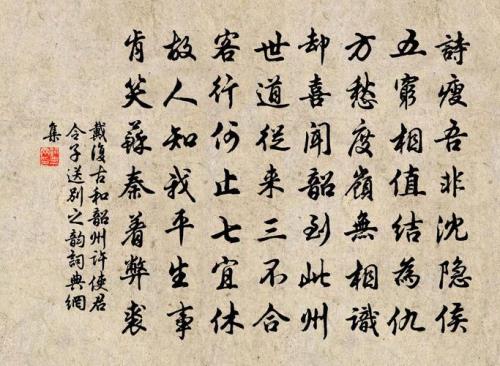 詩瘦吾非沈隐侯
五窮相值結為仇
方愁度嶺無相識
却喜聞韶到此州
世道從来三不合
客行何止七宜休
故人知我平生事
肯笑蘇秦着弊裘
戴復古和韶州許使君
令子送别之韵詞典網
集